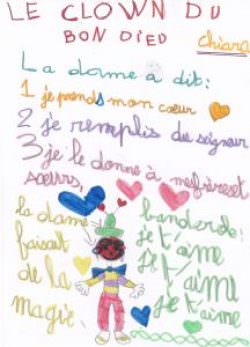 LE CLOWN DU
BON DIEU
chiara
La dame a dit:
1 je prends mon cœur
2 je remplis du seigneur
3 je le donne à mes frères et
sœurs,
la dame
faisait
de la
magie.
banderole:
je t'aime
je t'aime
je t'aime